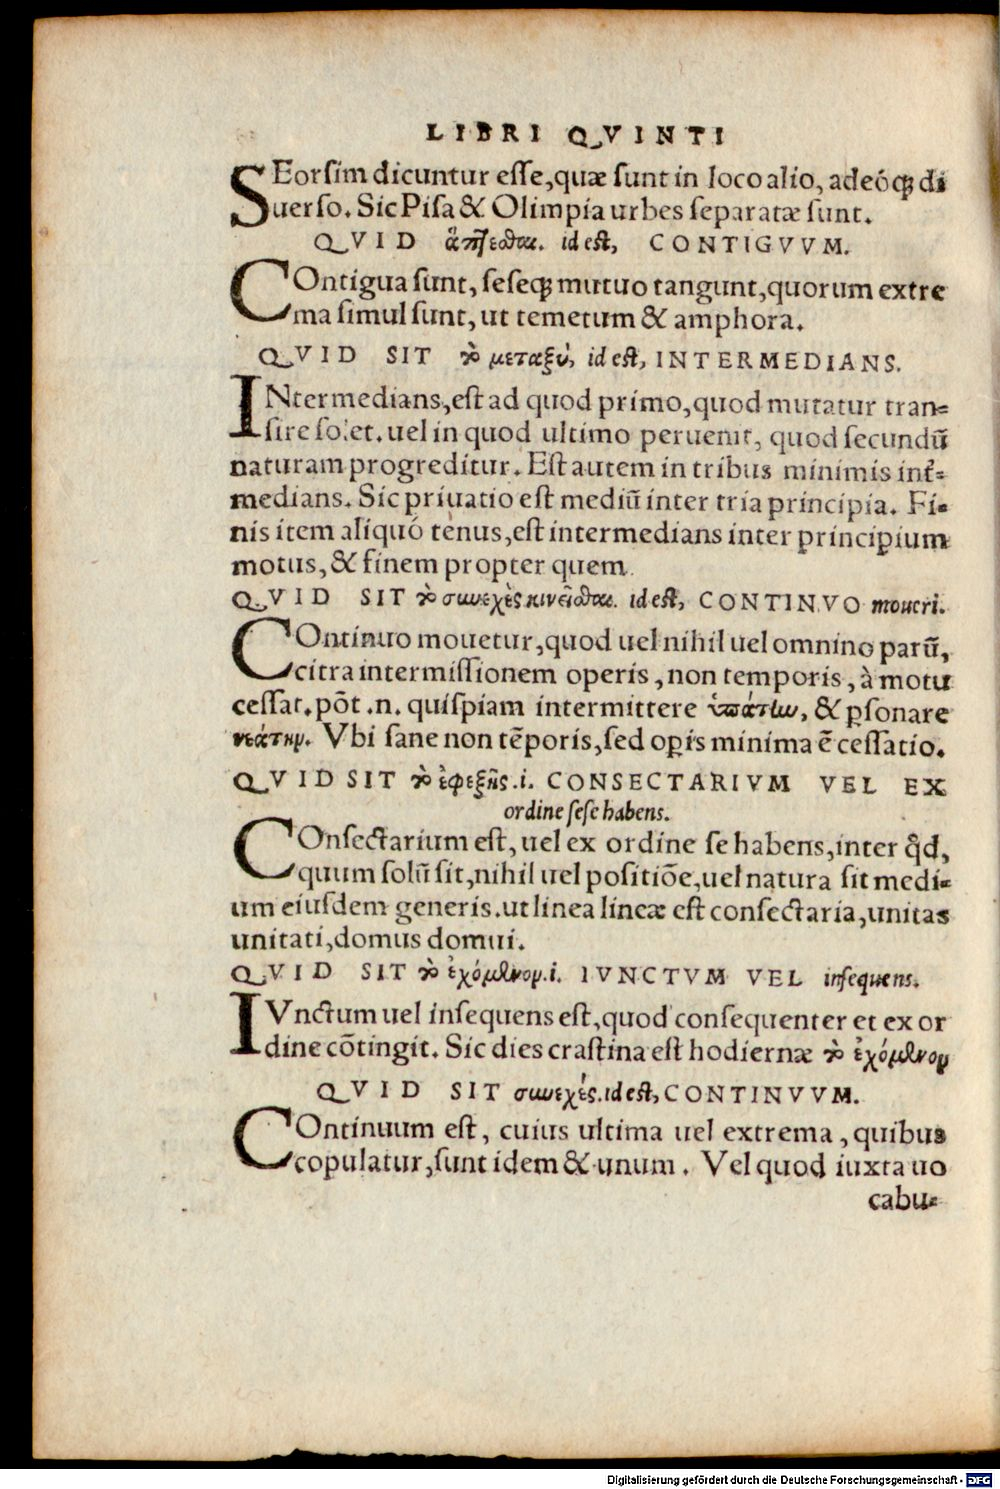 LIBRI QVINTI
SEorsim dicuntur esse, quæ sunt in loco alio, adeóq; di
uerso. Sic Pisa & Olimpia urbes separatæ sunt.
QVID ἅπτεσθαι. id est, CONTIGVVM.
COntigua sunt, seseq; mutuo tangunt, quorum extre
ma simul sunt, ut temetum & amphora.
QVID SIT τὸ μεταξύ, id est, INTERMEDIANS.
INtermedians, est ad quod primo, quod mutatur tran=
sire solet. uel in quod ultimo peruenit, quod secundū
naturam progreditur. Est autem in tribus minimis int̄=
medians. Sic priuatio est mediū inter tria principia. Fi=
nis item aliquó tenus, est intermedians inter principium
motus, & finem propter quem.
QVID SIT τὸ συνεχὲς κινεῖσθαι. id est, CONTINVO moueri.
COntinuo mouetur, quod uel nihil uel omnino parū,
citra intermissionem operis, non temporis, à motu
cessat. põt .n. quispiam intermittere ὑπάτην, & ꝑsonare
νεάτην. Vbi sane non tēporis, sed oꝑis minima ē cessatio.
QVID SIT τὸ ἐφεξῆς .i. CONSECTARIVM VEL EX
ordine sese habens.
COnsectarium est, uel ex ordine se habens, inter q̄d,
quum solū sit, nihil uel positiōe, uel natura sit medi=
um eiusdem generis. ut linea lineæ est consectaria, unitas
unitati, domus domui.
QVID SIT τὸ ἐχόμενον .i. IVNCTVM VEL insequens.
IVnctum uel insequens est, quod consequenter et ex or
dine cōtingit. Sic dies crastina est hodiernæ τὸ ἐχόμενον
QVID SIT συνεχές. id est, CONTINVVM.
COntinuum est, cuius ultima uel extrema, quibus
copulatur, sunt idem & unum. Vel quod iuxta uo
cabu=
Digitalisierung gefördert durch die Deutsche Forschungsgemeinschaft - DFG